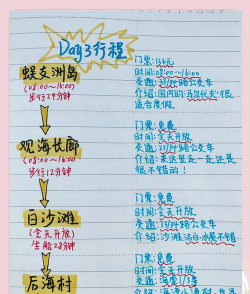 Day3行程
蜈支洲岛
(08:00~16:00)
步行29分钟
门票:136元
时间:08:00~16:00
交通:33/34路公交车
介绍:国内的“马尔代夫”很
适合度假
观海长廊
(08:00~16:00)
步行12分钟
门票:免费
时间:全天开放
交通:33/34路公交车
介绍:来这里走一走还是
很不错的!
白沙滩
(全天开放)
坐船28分钟
门票:免费
时间:全天开放
交通:33/34路公交车
介绍:沙滩洁白水质不错
后海村
门票:免费
时间:全天开放